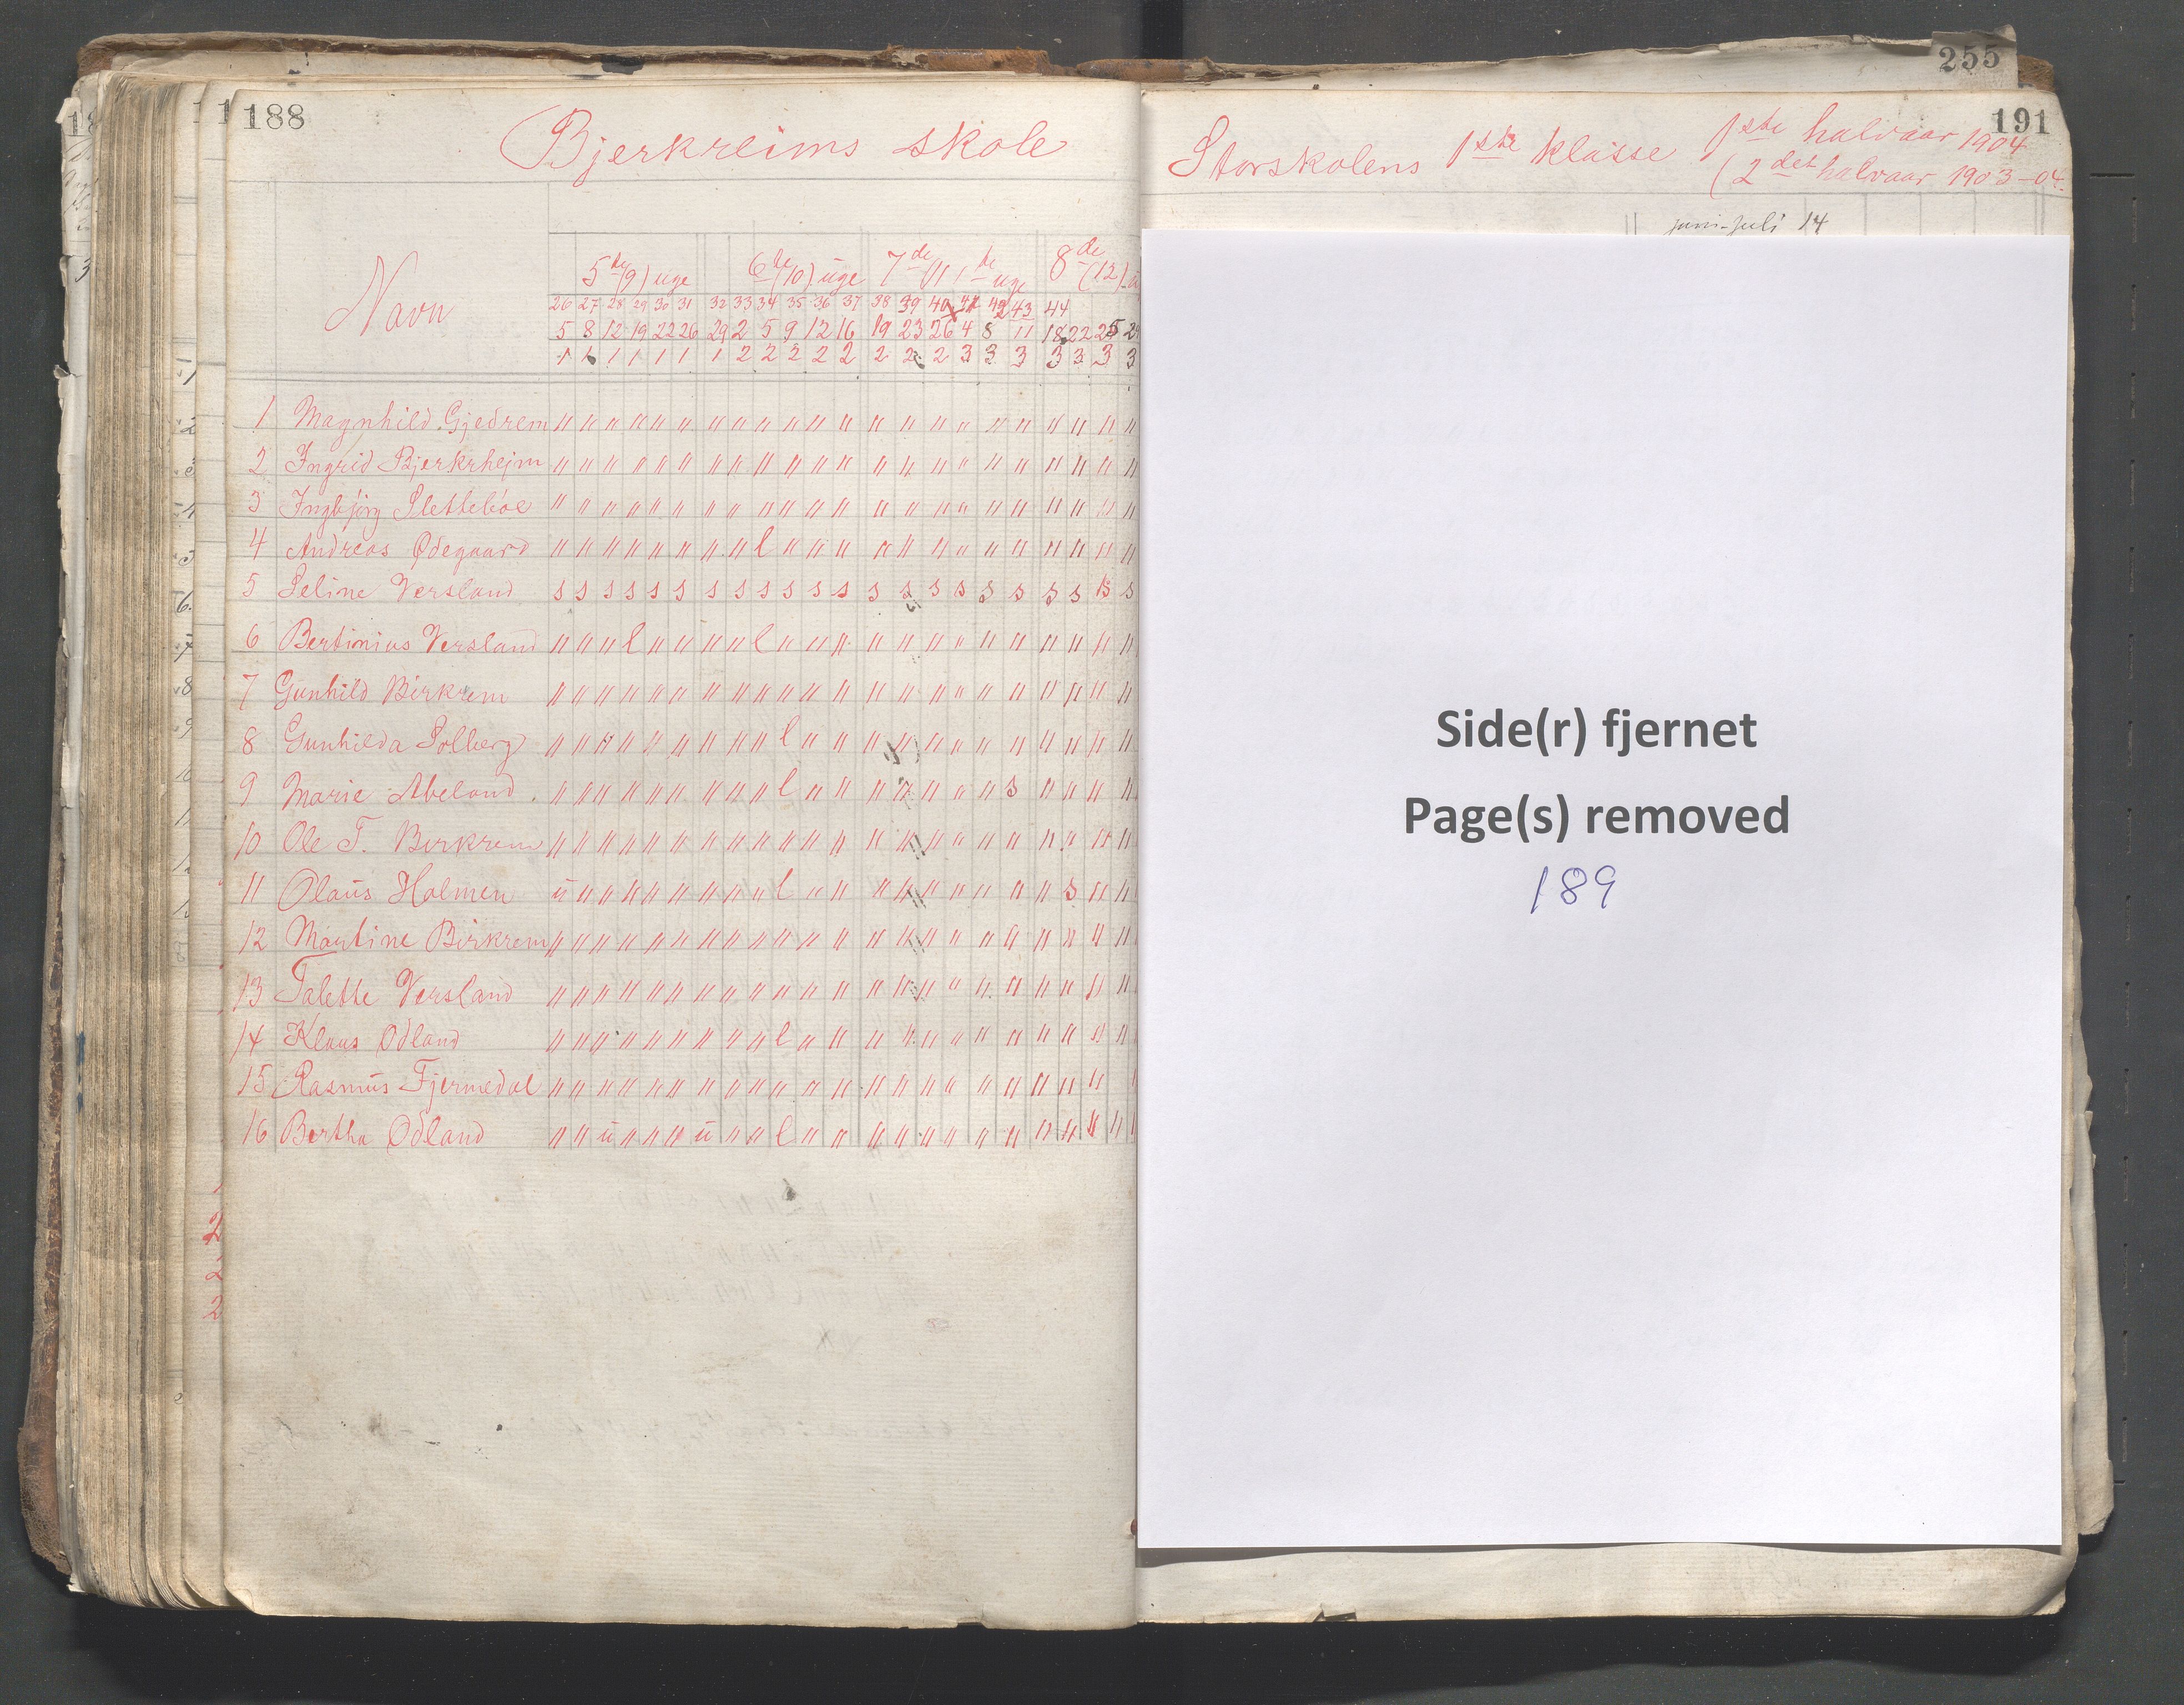 188
Bjerkreims skole
Navn
5te (9) uge 6te (10) uge 7de (11te uge 8de (12)
26 27 28 29 30 31 32 33 34 35 36 37 38 39 40 41 42 43 44
5 8 12 19 22 26 29 2 5 9 12 16 19 23 26 4 8 11 18 22 25 29
1 1 1 1 1 1 1 2 2 2 2 2 2 2 2 3 3 3 3 3 3 3
1 Magnhild Gjedrem " " " " " " " " " " " " " " " " " " " " " "
2 Ingrid Bjerkrheim " " " " " " " " " " " " " " " " " " " " " "
3 Ingbjörg Sletteböe " " " " " " " " " " " " " " " " " " " " " "
4 Andreas Ødegaard " " " " " " " " l " " " " " " " " " " " " "
5 Seline Versland s s s s s s s s s s s s s s s s s s s s s s
6 Bertinius Versland " " " l " " " " l " " " " " " " " " " " " "
7 Gunhild Birkrem " " " " " " " " " " " " " " " " " " " " " "
8 Gunhilda Solberg " " " " " " " " " l " " " " " " " " " " " "
9 Marie Abeland " " " " " " " " " l " " " " " " " s " " " "
10 Ole T. Birkrem " " " " " " " " " " " " " " " " " " " " " "
11 Olaus Holmen u " " " " " " " " l " " " " " " " " " s " "
12 Martine Birkrem " " " " " " " " " " " " " " " " " " " " " "
13 Talette Versland " " " " " " " " " " " " " " " " " " " " " "
14 Klaus Ødland " " " " " " " " " l " " " " " " " " " " " "
15 Rasmus Fjermedal " " " " " " " " " " " " " " " " " " " " "
16 Bertha Ødland " " u " " " u " " l " " " " " " " " " " " "
255
191
Storskolens 1ste klasse 1ste halvaar 1904
(2det halvaar 1903-04.
juni-juli 14
Side(r) fjernet
Page(s) removed
189